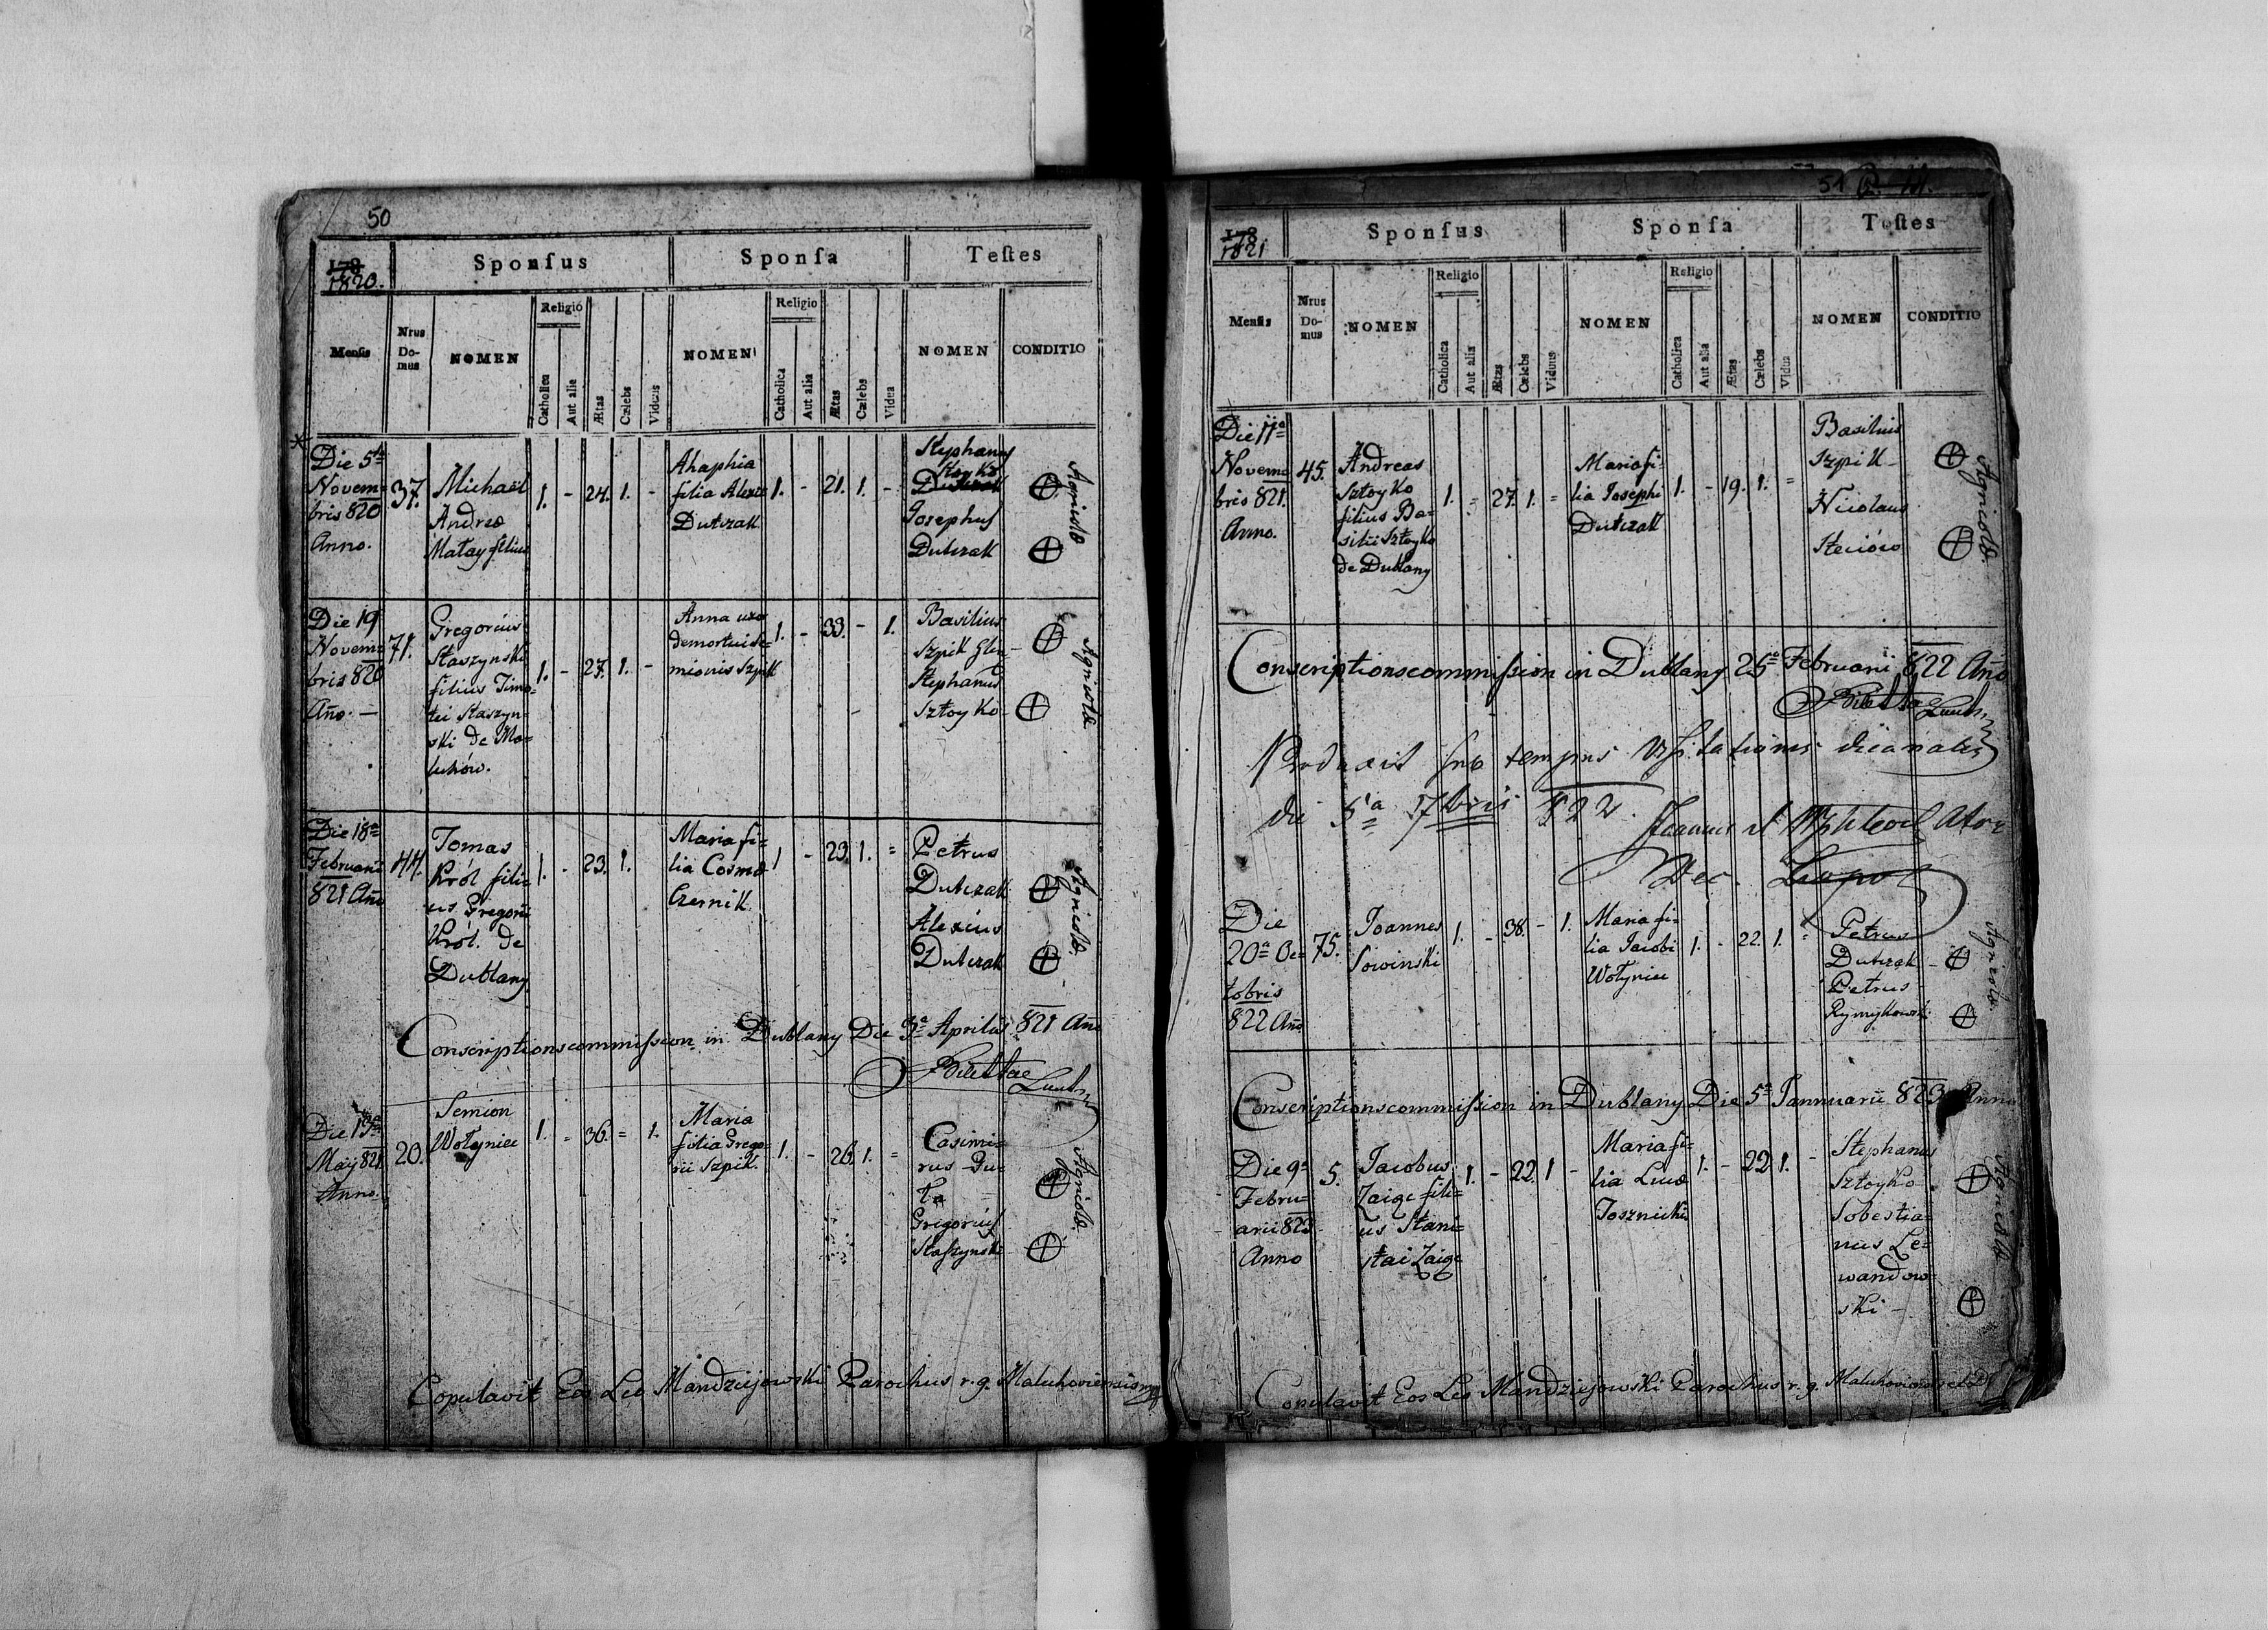 50
178
1820.
Sponsus
Sponsa
Testes
Mensis
Nrus Do-mus
NOMEN
Religio
Catholica
Aut alia
Ætas
Cælebs
Viduus
NOMEN
Religio
Catholica
Aut alia
Ætas
Cælebs
Vidua
NOMEN
CONDITIO
Die 5ta
Novem=
bris 820
Anno.
37.
Michael
Andreæ
Matay filius
1. - 24. 1. -
Ahaphia
filia Alexii
Dutczak
1. - 21. 1. -
Stephanus
Dutczak
Josephus
Dutczak
Agricolæ
Die 19
Novem=
bris 820
Año. —
71.
Gregorius
Staszynski
filius Timo=
tei Staszyn=
ski de Ma=
luhów.
1. - 27. 1. -
Anna uxo
demortui Se=
mionis Szpik
1. - 33. - 1.
Basilius
Szpik
Stephanus
Sztoyko
Agricolæ
Die 18a
Februarii
821 Año
44.
Tomas
Król fili=
us Gregorii
Król. de
Dublany
1. - 23. 1.
Maria fi=
lia Cosmæ
Czernik
1 - 23. 1. =
Petrus
Dutczak
Alexius
Dutczak
Agricolæ.
Conscriptionscommission in Dublany Die 3a Aprilis 821 Año
Die 13a
Maÿ 821
Anno.
20.
Semion
Wołyniec
1. - 36. = 1.
Maria
filia Grego=
rii Szpik.
1. - 26. 1. =
Casimi=
rus Du=
Gregorius
Staszynski
Agricolæ.
Copulavit Eos Leo Mandziejowski Parochus r. g. Maluhoviensis mp
51
178
1821
Sponsus
Sponsa
Testes
Mensis
Nrus Do-mus
NOMEN
Religio
Catholica
Aut alia
Ætas
Cælebs
Viduus
NOMEN
Religio
Catholica
Aut alia
Ætas
Cælebs
Vidua
NOMEN
CONDITIO
Die 11a
Novem=
bris 821.
Anno.
45.
Andreas
Sztoyko
filius Ba=
silii Sztoyko
de Dublany
1. = 27. 1. =
Maria fi=
lia Josephi
Dutczak
1. - 19. 1. =
Basilius
Szpik
Nicolaus
Steciów
Agricolæ.
Conscriptionscommission in Dublany 25a Februarii 822 Año
Produxit sub tempus Visitationis decanalis
die 5a 7bris 822.
Dec.
Die
20a Oc=
tobris
822 Año
75.
Joannes
Sowinski
1. - 38. - 1.
Maria fi=
lia Jacobi
Wołyniec
1. - 22. 1. =
Petrus
Dutczak
Petrus
Agricolæ.
Conscriptionscommission in Dublany Die 5a Jannuarii 823 Anno
Die 9a
Febru=
arii 823
Anno
5.
Jacobus
Zaiąc fili=
us Stani=
słai Zaiąc
1. - 22. 1 -
Maria fi=
lia Lucæ
Josznicki
1. - 22 1. -
Stephanus
Sztoyko
Sobestia=
nus Le=
wandow=
ski -
Agricolæ
Copulavit Eos Leo Mandziejowski Parochus r. g.